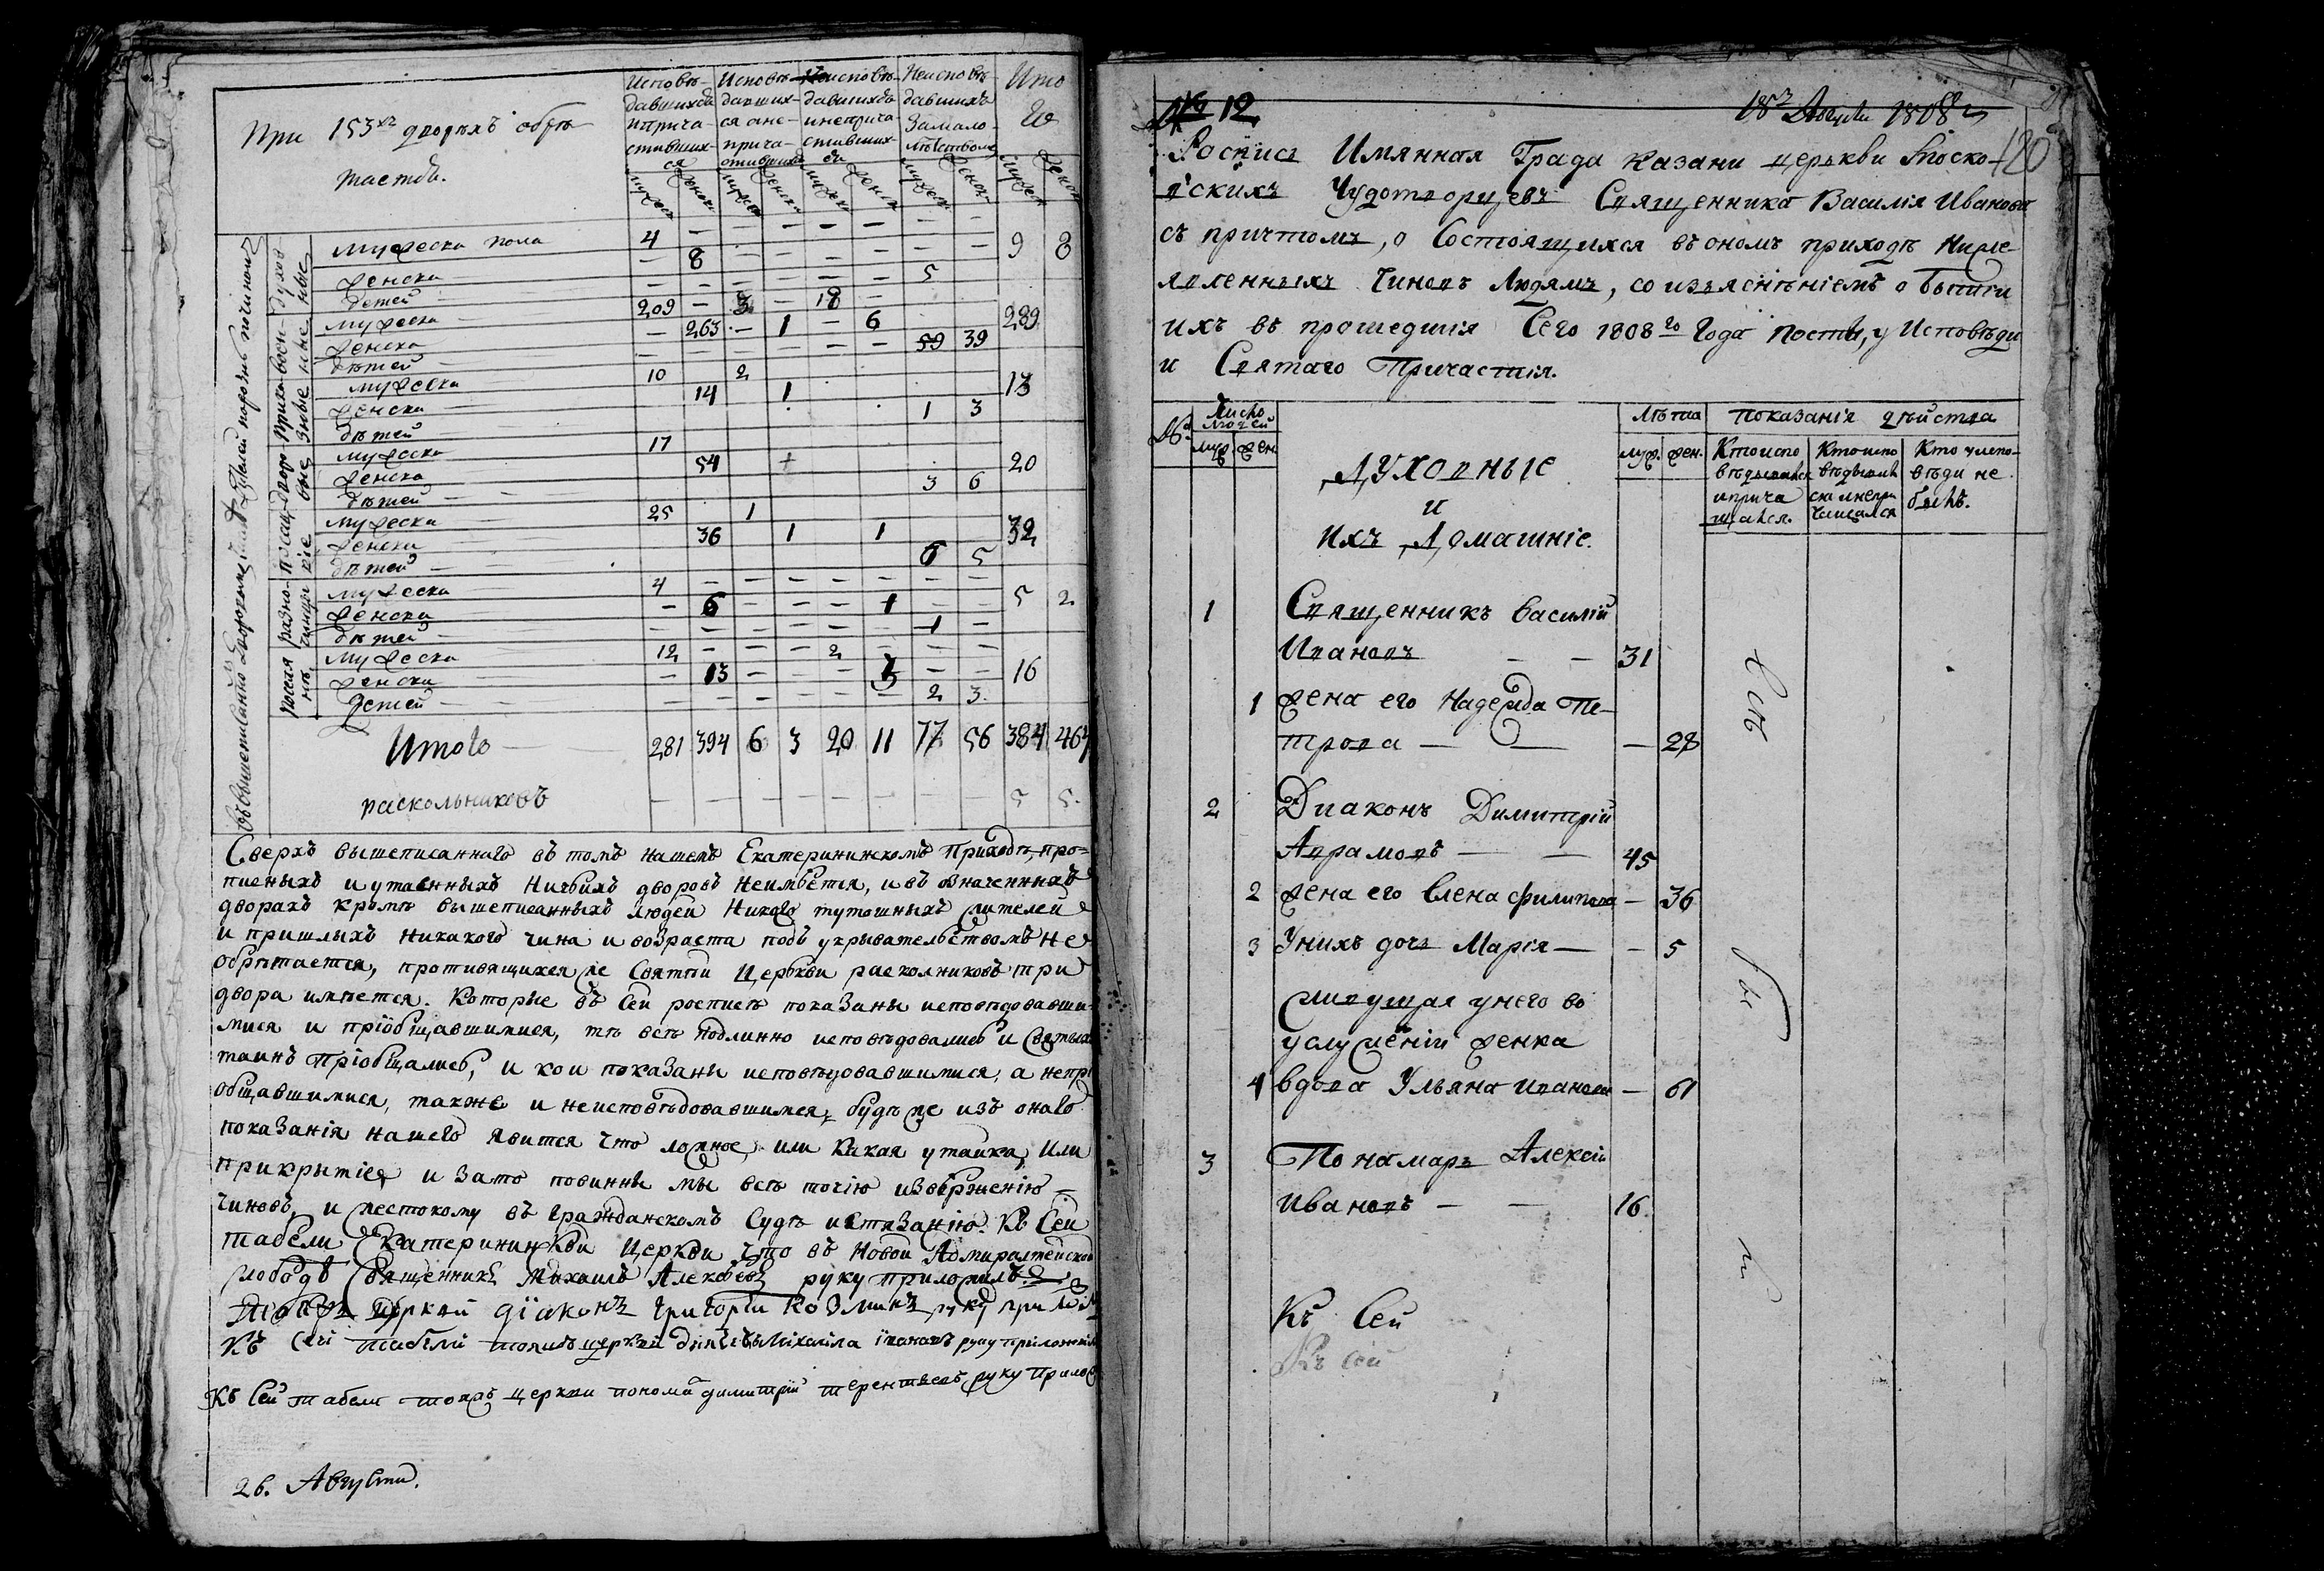 При 153хъ дворѣхъ обрѣ-
таетса.
Исповѣ-
давшихса
и прича-
стивших-
ся
Исповѣ-
давших-
ся а не-
прича-
стившихъ
Неисповѣ-
давшихса
и неприча-
стивших-
са
Неисповѣ-
давшихъ
за мало-
лѣтством
Ито
го
мужеска пола 4 — — — — — — — 9 8
женска — 8 — — — — — —
детей — — — — — — 5
мужеска 209 — 3 — 18 — 289
женска — 263 — 1 — 6
дѣтей — — — — — — 59 39
мужеска 10 2 13
женска 14 1
дѣтей 1 3
мужеска 17 20
женска 54 +
дѣтей 3 6
мужеска 25 1 32
женска 36 1 1
дѣтей 6 5
мужеска 4 — — — — — — — 5 2
женска — 6 — — — 1 — —
дѣтей — — — — — — 1 —
мужеска 12 — — — 2 — — — 16
женска — 13 — — — 3 — —
детей — — — — — — 2 3
Итого 281 394 6 3 20 11 77 56 384 464
раскольниковъ — — — — — — — — 5 5.
Сверхъ вышеписаннаго въ томъ нашемъ Екатерининскомъ Приходѣ, про-
писныхъ и утаенныхъ ничьихъ дворовъ неимѣется, и въ означенныхъ
дворахъ кромѣ вышеписанныхъ людей никого тутошныхъ жителей
и пришлыхъ никакого чина и возраста подъ укрывательствомъ не
обрѣтается, противящихся же Святой Церькви расколниковъ три
двора имѣется. Которые въ сей росписѣ показаны исповѣдовавши-
мися и пріобщавшимися, тѣ всѣ подлинно исповѣдовались и Святыхъ
таинъ пріобщались, и кои показаны исповѣдовавшимися, а непрі
общавшимися, также и неисповѣдовавшимся, будѣ же изъ онаго
показанія нашего явится что ложное, или какая утайка, или
прикрытіе, и за то повинны мы всѣ точію изверженію
чиновъ, и жестокому въ гражданскомъ судѣ истязанію. Къ сей
табели Екатерининской Церкви что въ Новой Адмиралтейской
слободѣ Священникъ Михаилъ Алексѣевъ руку приложилъ.
тояжъ церкви діаконъ Григорій Козминъ руку прилож
Къ сей табели тояжъ церкви дьячекъ Михаила Ивановъ руку приложилъ
Къ сей табели тояжъ церкви понома димитрій терентьевъ руку прилож
26. Августа.
№ 12
18г Августа 1808г
120
Роспись Имянная Града Казани церькви Ярослав-
скихъ Чудотворцевъ Священника Василія Иванова
съ причтомъ, о Состоящихся въ ономъ приходѣ ниже
явленныхъ чиновъ Людямъ, со изъясненіемъ о бытіи
ихъ въ прошедшія Сего 1808го Года посты, у Исповѣди
и Святаго Причастія.
№
Число
людей
муж. жен.
Духовные
и
ихъ Домашніе.
Лѣта
муж. жен.
Показанія дѣйства
Кто испо
вѣдывался
и прича
щался.
Кто испо
вѣдывал
ся и непри
чащался
Кто у испо-
вѣди не
былъ.
1 Священникъ Василій
Ивановъ — — 31
1 жена его Надежда Пе-
трова — — 28
2 Диаконъ Димитрій
Аврамовъ — — 45
2 жена его Елена Филипова — 36
3 У нихъ дочь Марія — — 5
живущая у него во
услуженіи женка
4 вдова Ульяна Иванова — 61
3 Понамарь Алексій
Ивановъ — — 16.
Къ Сей
Къ сей